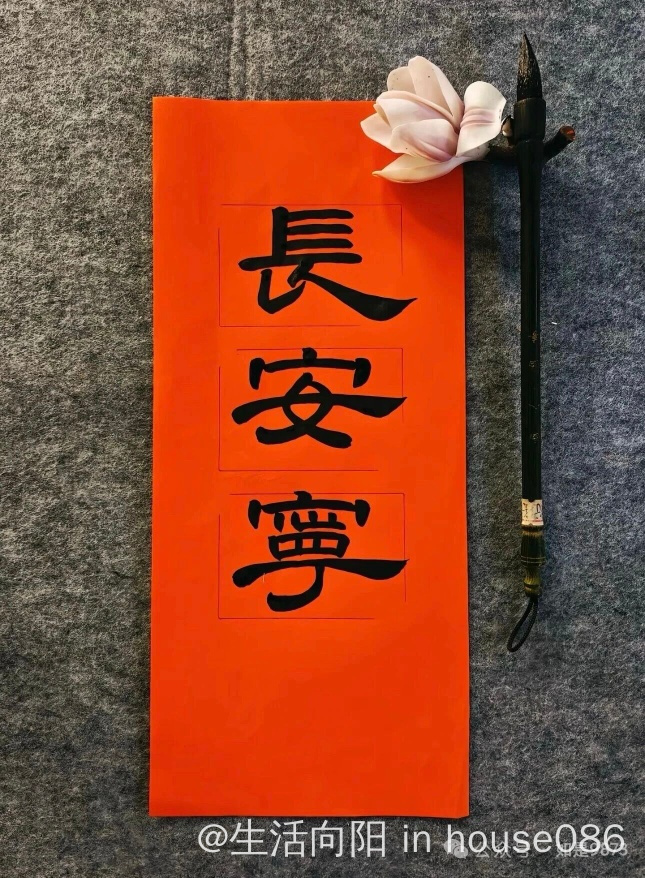 長
安
寧
@生活向阳 in house086
公众号